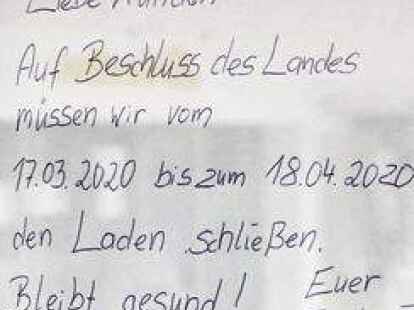 Liebe Kunden
Auf Beschluss des Landes
müssen wir vom
17.03.2020 bis zum 18.04.2020
den Laden schließen.
Bleibt gesund! Euer